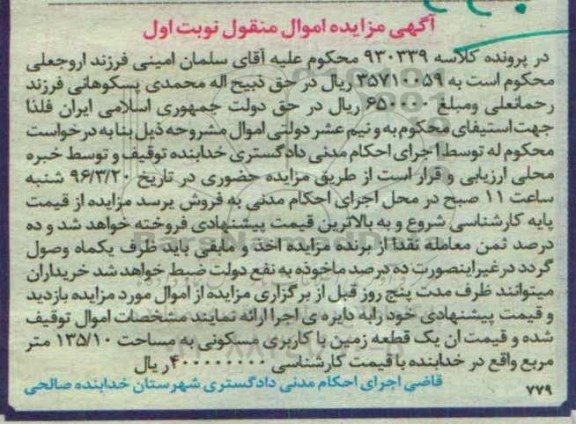 آگهی مزایده اموال منقول نوبت اول
در پرونده کلاسه ۹۳۰۳۳۹ محکوم علیه آقای سلمان امینی فرزند اروجعلی
محکوم است به ۳۵۷۱۰۰۵۹ ریال در حق ذبیح اله محمدی پسکوهانی فرزند
رحمانعلی ومبلغ ۶۵۰۰۰۰ ریال در حق دولت جمهوری اسلامی ایران فلذا
جهت استیفای محکوم به و نیم عشر دولتی اموال مشروحه ذیل بنا به درخواست
محکوم له توسط اجرای احکام مدنی دادگستری خدابنده توقیف و توسط خبره
محلی ارزیابی و قرار است از طریق مزایده حضوری در تاریخ ۹۶/۳/۲۰ شنبه
ساعت ۱۱ صبح در محل اجرای احکام مدنی به فروش برسد مزایده از قیمت
پایه کارشناسی شروع و به بالاترین قیمت پیشنهادی فروخته خواهد شد و ده
درصد ثمن معامله نقدا از برنده مزایده اخذ و مابقی باید ظرف یکماه وصول
گردد درغیراینصورت ده درصد ماخوذه به نفع دولت ضبط خواهد شد خریداران
میتوانند ظرف مدت پنج روز قبل از برگزاری مزایده از اموال مورد مزایده بازدید
و قیمت پیشنهادی خود رابه دایره ی اجرا ارائه نمایند مشخصات اموال توقیف
شده و قیمت ان یک قطعه زمین با کاربری مسکونی به مساحت ۱۳۵/۱۰ متر
مربع واقع در خدابنده با قیمت کارشناسی ۴۰۰۰۰۰۰۰۰ ریال
قاضی اجرای احکام مدنی دادگستری شهرستان خدابنده صالحی
۷۷۹